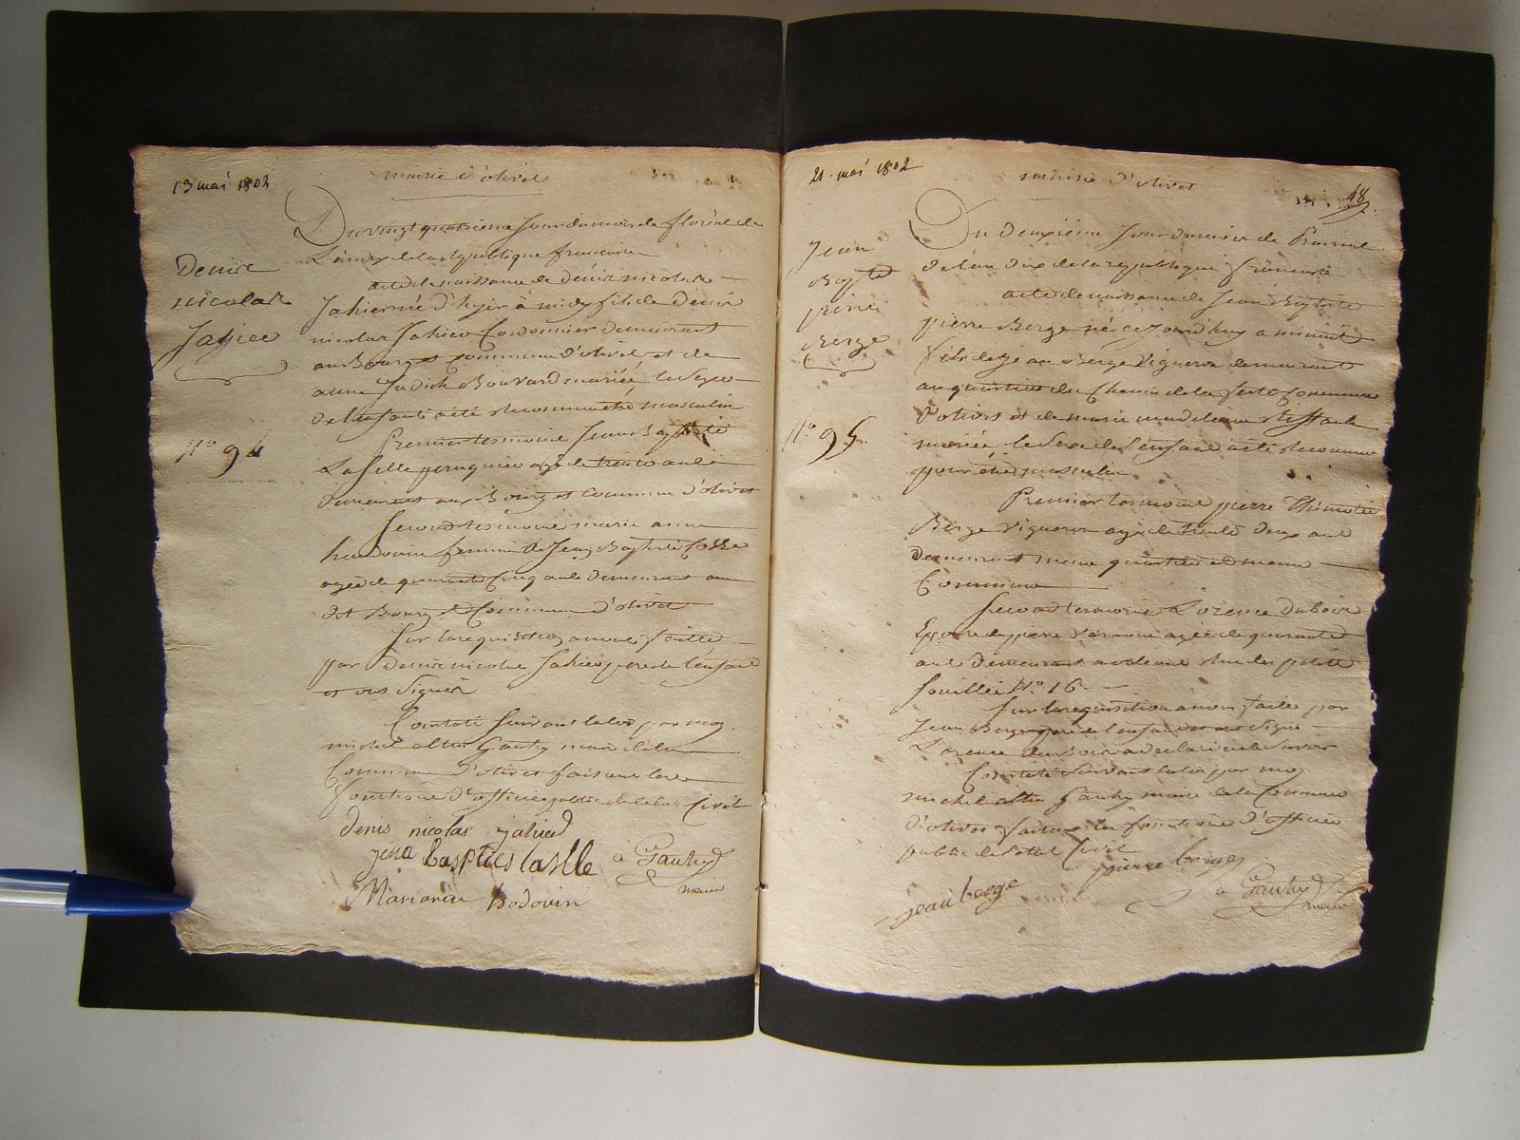 13 mai 1802
mairie d'olivet
Du vingt quatrieme Jour du mois de floréal de
L'an dix de la republique francaise
acte de naissance de denis nicolas
Jahier né d'hyer à midy fils de Denis
nicolas Jahier Cordonnier demeurant
au Bourg et commune d'olivet et de
anne Judith Bouvard mariés le sexe
de l'enfant a été reconnu être masculin
Premier temoin Jean Baptiste
Laselle perruquier agé de trente ans
demeurant aux Bourg et Commune d'olivet
Second temoin marie anne
hardouin femme de Jean Baptiste Cosse
agée de quarante Cinq ans demeurant au
dit Bourg et Commune d'olivet
Sur la requisition a nous faitte
par Denis nicolas Jahier pere de l'enfant
et ont signé
Constaté suivant la loi par moy
michel altin Gauthy maire de la
Commune d'olivet faisant les
fonctions d'officier public de l'etat Civil
denis nicolas jahier
jean baptiste laselle
à Gauthy
maire
Marianne hodouin
Denis
nicolas
Jahier
N° 94
21 mai 1802
mairie d'olivet
48
Du deuxieme Jour du mois de Prairial
de l'an dix de la republique francaise
acte de naissance de Jean Baptiste
pierre Berge né ce Jourd'huy a minuit
fils de Jean Berge Vigneron demeurant
au quartier du Chemin de la ferté Commune
d'olivet et de marie madeleine
mariés le sexe de l'enfant a été reconnu
pour être masculin
Premier temoin pierre Thimotée
Berge Vigneron agé de trente deux ans
demeurant meme quartier et meme
Commune
Second temoin Lorence Dubois
Epouse de pierre agée de quarante
ans demeurant a orleans rue des petits
souillier N° 16
Sur la requisition a nous faite par
Jean Berge pere de l'enfant et ont signé
Lorence Dubois a declaré ne le savoir
Constaté suivant la loi par moy
michel altin Gauthy maire de la Commune
d'olivet faisant les fonctions d'officier
public de l'etat Civil
pierre berge
jean berge
à Gauthy
maire
Jean
Bapte
pierre
Berge
N° 95